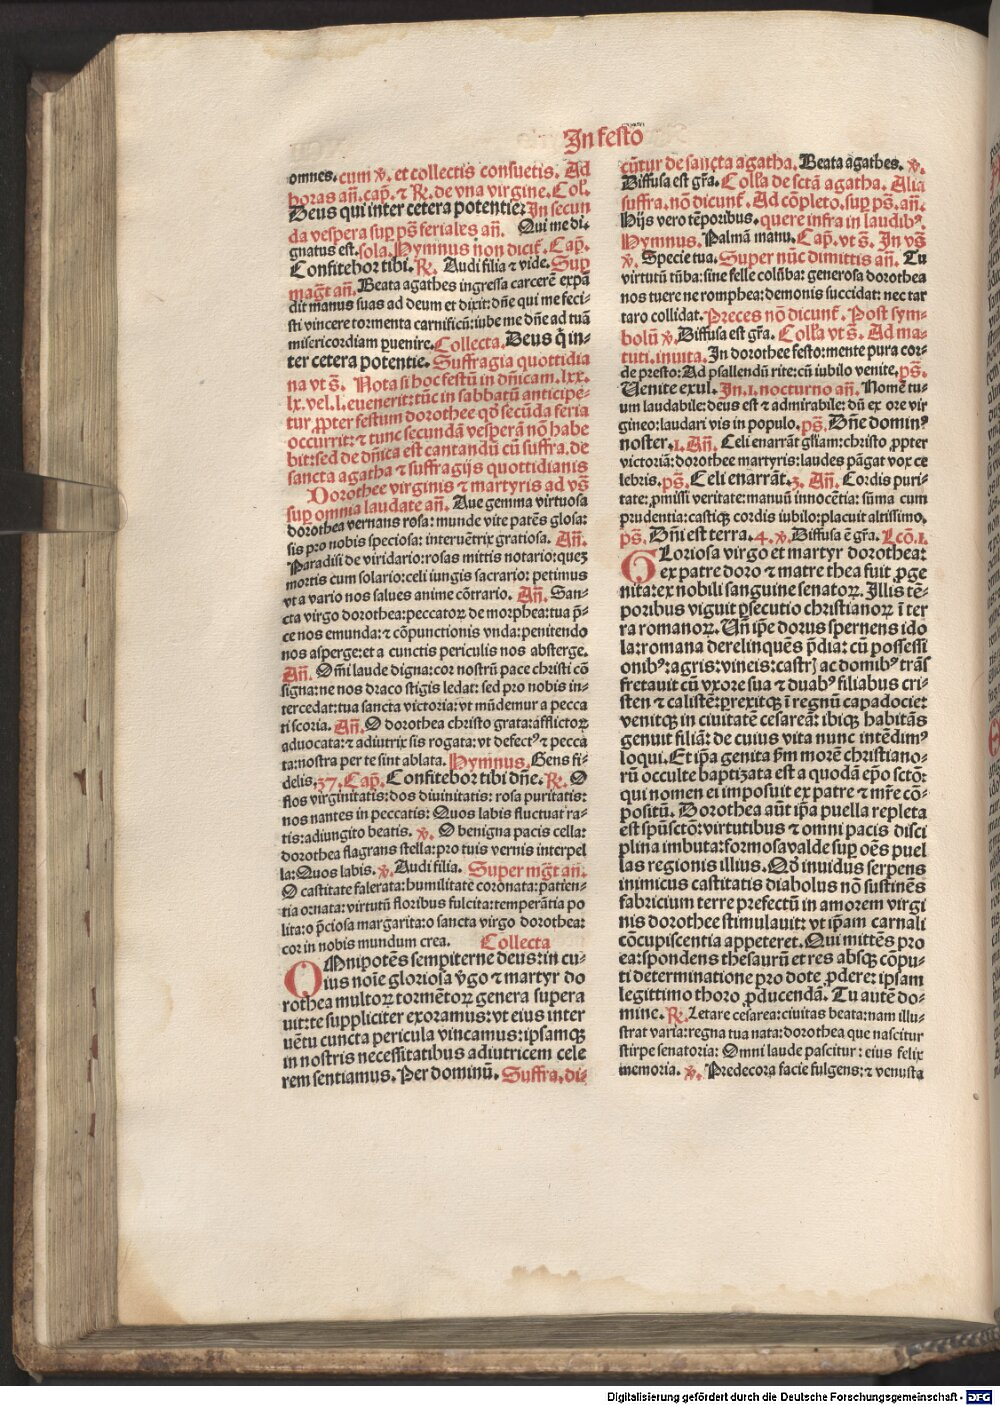 In festo
omnes. cum ℣. et collectis consuetis. Ad
horas añ. cap̄. ⁊ ℟. de vna virgine. Col̄.
Deus qui inter cetera potentie: In secun
da vespera sup̱ ps̄ feriales añ. Qui me di⸗
gnatus est. sola. Hymnus non dicit̄. Cap̄.
Confitebor tibi. ℟. Audi filia ⁊ vide. Sup̱
mag̅t añ. Beata agathes ingressa carcerē expā
dit manus suas ad deum et dixit: dn̄e qui me feci⸗
sti vincere tormenta carnificū: iube me dn̄e ad tuā
misericordiam ꝑuenire. Collecta. Deus q̇ in⸗
ter cetera potentie. Suffragia quottidia
na vt s̄. Nota si hoc festū in dn̄icam. lxx.
lx. vel. l. euenerit: tūc in sabbatū anticipe⸗
tur ꝓpter festum dorothee qd̄ secūda feria
occurrit: ⁊ tunc secundā vesperā nō habe
bit: sed de dn̄ica est cantandū cū suffra. de
sancta agatha ⁊ suffragijs quottidianis
Dorothee virginis ⁊ martyris ad vs̄
sup̱ omnia laudate añ. Aue gemma virtuosa
dorothea vernans rosa: munde vite patēs glosa:
sis pro nobis speciosa: interuētrix gratiosa. Añ.
Paradisi de viridario: rosas mittis notario: quez
mortis cum solario: celi iungis sacrario: petimus
vt a vario nos salues anime cōtrario. Añ. San⸗
cta virgo dorothea: peccatoꝝ de morphea: tua p̄⸗
ce nos emunda: ⁊ cōpunctionis vnda: penitendo
nos asperge: et a cunctis periculis nos absterge.
Añ. Om̄i laude digna: cor nostrū pace christi cō
signa: ne nos draco stigis ledat: sed pro nobis in⸗
tercedat: tua sancta victoria: vt mūdemur a pecca
ti scoria. Añ. O dorothea christo grata: afflictoꝝ
aduocata: ⁊ adiutrix sis rogata: vt defectꝰ ⁊ pecca
ta: nostra per te sint ablata. Hymnus. Gens fi⸗
delis. 37. Cap̄. Confitebor tibi dn̄e. ℟. O
flos virginitatis: dos diuinitatis: rosa puritatis:
nos nantes in peccatis: Quos labis fluctuat ra⸗
tis: adiungito beatis. ℣. O benigna pacis cella:
dorothea flagrans stella: pro tuis vernis interpel
la: Quos labis. ℣. Audi filia. Super mg̅t añ.
O castitate falerata: humilitate coronata: patien⸗
tia ornata: virtutū floribus fulcita: temperātia po
lita: o p̄ciosa margarita: o sancta virgo dorothea:
cor in nobis mundum crea. Collecta
OMnipotēs sempiterne deus: in cu⸗
ius noīe gloriosa v̄go ⁊ martyr do
rothea multoꝝ tormētoꝝ genera supera
uit: te suppliciter exoramus: vt eius inter
uētu cuncta pericula vincamus: ipsamqꝫ
in nostris necessitatibus adiutricem cele
rem sentiamus. Per dominū. Suffra. di⸗
cūtur de sancta agatha. Beata agathes. ℣.
Diffusa est gr̄a. Coll̄a de sctā agatha. Alia
suffra. nō dicunt̄. Ad cōpleto. sup̱ ps̄. añ.
Hijs vero tēporibus. quere infra in laudibꝰ.
Hymnus. Palmā manu. Cap̄. vt s̄. In vs̄
℣. Specie tua. Super nūc dimittis añ. Tu
virtutū tūba: sine felle colūba: generosa dorothea
nos tuere ne romphea: demonis succidat: nec tar
taro collidat. Preces nō dicunt̄. Post sym⸗
bolū ℣. Diffusa est gr̄a. Coll̄a vt s̄. Ad ma⸗
tuti. inuita. In dorothee festo: mente pura cor⸗
de presto: Ad psallendū rite: cū iubilo venite. ps̄.
Uenite exul. In .1. nocturno añ. Nomē tu⸗
um laudabile: deus est ⁊ admirabile: dū ex ore vir
gineo: laudari vis in populo. ps̄. Dn̄e dominꝰ
noster. 1. Añ. Celi enarrāt gl̄iam: christo ꝓpter
victoriā: dorothee martyris: laudes pāgat vox ce
lebris. ps̄. Celi enarrāt. 3. Añ. Cordis puri⸗
tate: ꝓmissi veritate: manuū innocētia: sūma cum
prudentia: castiqꝫ cordis iubilo: placuit altissimo.
ps̄. Dn̄i est terra. 4. ℣. Diffusa ē gr̄a. Lcō. 1.
GLoriosa virgo et martyr dorothea:
ex patre doro ⁊ matre thea fuit ꝓge
nita: ex nobili sanguine senatoꝝ. Illis tē⸗
poribus viguit ꝑsecutio christianoꝝ ī ter
ra romanoꝝ. Un̄ ip̄e dorus spernens ido
la: romana derelinquēs p̄dia: cū possessi
onibꝰ: agris: vineis: castrꝭ ac domibꝰ trās
fretauit cū vxore sua ⁊ duabꝰ filiabus cri⸗
sten ⁊ calistē: ꝑrexitqꝫ ī regnū capadocie:
venitqꝫ in ciuitatē cesareā: ibiqꝫ habitās
genuit filiā: de cuius vita nunc intēdimꝰ
loqui. Et ip̄a genita ẜm morē christiano⸗
rū occulte baptizata est a quodā ep̄o sctō:
qui nomen ei imposuit ex patre ⁊ mr̄e cō⸗
positū. Dorothea aūt ip̄a puella repleta
est sp̄usctō: virtutibus ⁊ omni pacis disci
plina imbuta: formosa valde sup̱ oēs puel
las regionis illius. Qd̄ inuidus serpens
inimicus castitatis diabolus nō sustinēs
fabricium terre prefectū in amorem virgi
nis dorothee stimulauit: vt ip̄am carnali
cōcupiscentia appeteret. Qui mittēs pro
ea: spondens thesaurū et res absqꝫ cōpu⸗
ti determinatione pro dote ꝓdere: ipsam
legittimo thoro ꝓducendā. Tu autē do⸗
mine. ℟. Letare cesarea: ciuitas beata: nam illu⸗
strat varia: regna tua nata: dorothea que nascitur
stirpe senatoria: Omni laude pascitur: eius felix
memoria. ℣. Predecora facie fulgens: ⁊ venusta
Digitalisierung gefördert durch die Deutsche Forschungsgemeinschaft - DFG